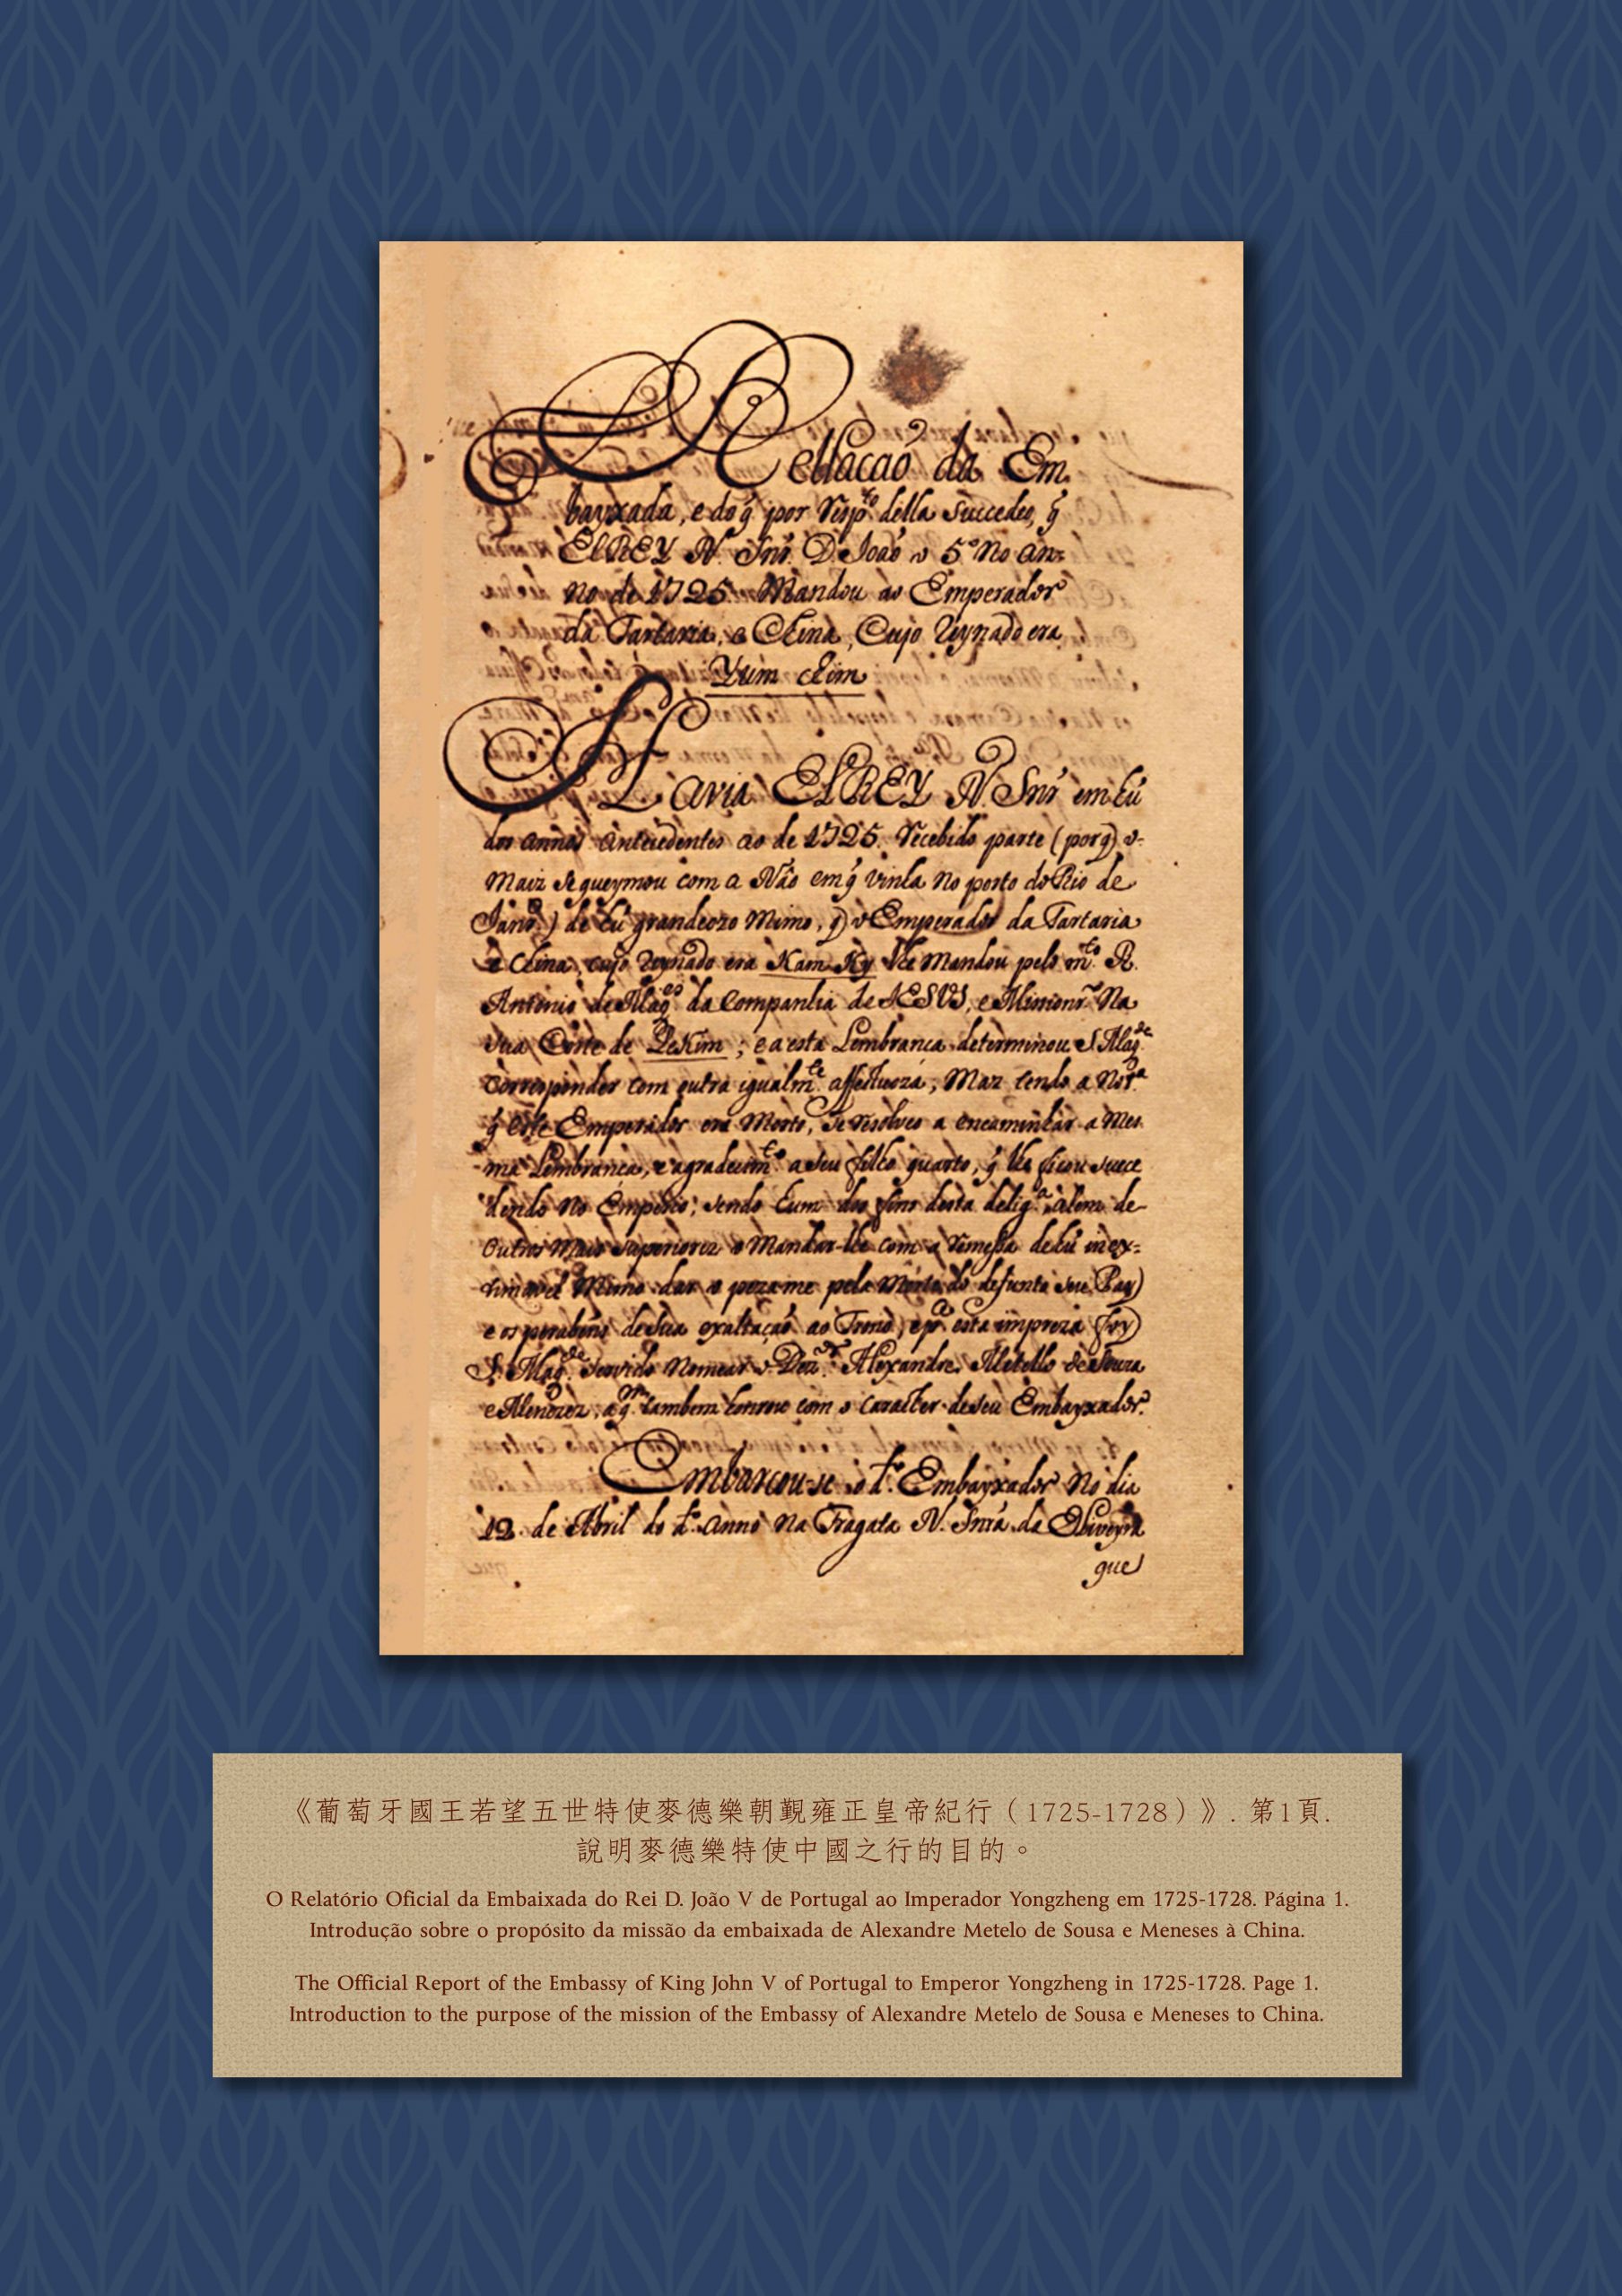 Rellação da Em
bayxada, e do q̃ por Resp.to della succedeo, q̃
ElREY N. Snr. D. João o 5.º No an-
no de 1725. Mandou ao Emperador
da Tartaria, e China, Cujo Reynado era
Yum chim
Havia ElREY N. Snr em hũ
dos annos antecedentes ao de 1725. Recebido parte (porq̃ o
Maiz se queymou com a Náo em q̃ vinha no porto do Rio de
Janr.o) de hũ grandeozo Mimo, q̃ o Emperador da Tartaria
e China, cujo Reynado era Kam Hy lhe Mandou pelo m.to R.
Antonio de Mag.es da Companhia de JESVS, e Mission.r Na
sua Corte de Pekim; e a esta Lembrança determinou S. Mag.de
corresponder com outra igualm.te affectuoza; Maz tendo a Not.a
q̃ este Emperador era Morto, se resolveo a encaminhar a Mes
ma Lembrança, e agradecim.to a seu filho quarto, q̃ lhe ficou succe
dendo No Emperio; sendo hum dos fins desta delig.a alem de
outros Mais superiorez o Mandar-lhe com a remessa de hũ inex-
timavel Mimo dar o pezame pela Morte do defunto seu Pay
e os parabens de sua exaltação ao Trono; e p.a esta impreza foy
S. Mag.de servido Nomear o Dez.or Alexandre Metello de Souza
e Menezez, a q.m tambem honrou com o caracter de seu Embayxador.
Embarcou-se o d.o Embayxador No dia
12. de Abril do d.o anno Na Fragata N. Snra. da Oliveyra
que
《葡萄牙國王若望五世特使麥德樂朝覲雍正皇帝紀行（1725-1728）》. 第1頁.
說明麥德樂特使中國之行的目的。
O Relatório Oficial da Embaixada do Rei D. João V de Portugal ao Imperador Yongzheng em 1725-1728. Página 1.
Introdução sobre o propósito da missão da embaixada de Alexandre Metelo de Sousa e Meneses à China.
The Official Report of the Embassy of King John V of Portugal to Emperor Yongzheng in 1725-1728. Page 1.
Introduction to the purpose of the mission of the Embassy of Alexandre Metelo de Sousa e Meneses to China.